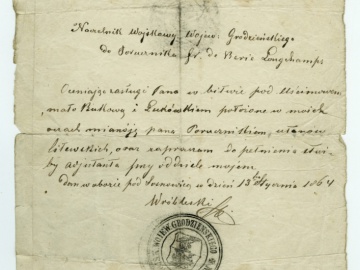 Naczelnik Wojskowy Wojew: Grodzieńskiego
do Porucznika Fr. de Berie Longchamps
Oceniając zasługi Pana w bitwie pod Uścimowem,
mało Bukową i położone w moich
oczach mianuję pana Porucznikiem, ułanów
litewskich, oraz zapraszam do pełnienia służ
by adjutanta przy oddziele mojem.
dan w oborie pod Sosnowicą w dzień 13 Stycznia 1864
Wróblewski
WOJEW. GRODZIEŃSKIEGO